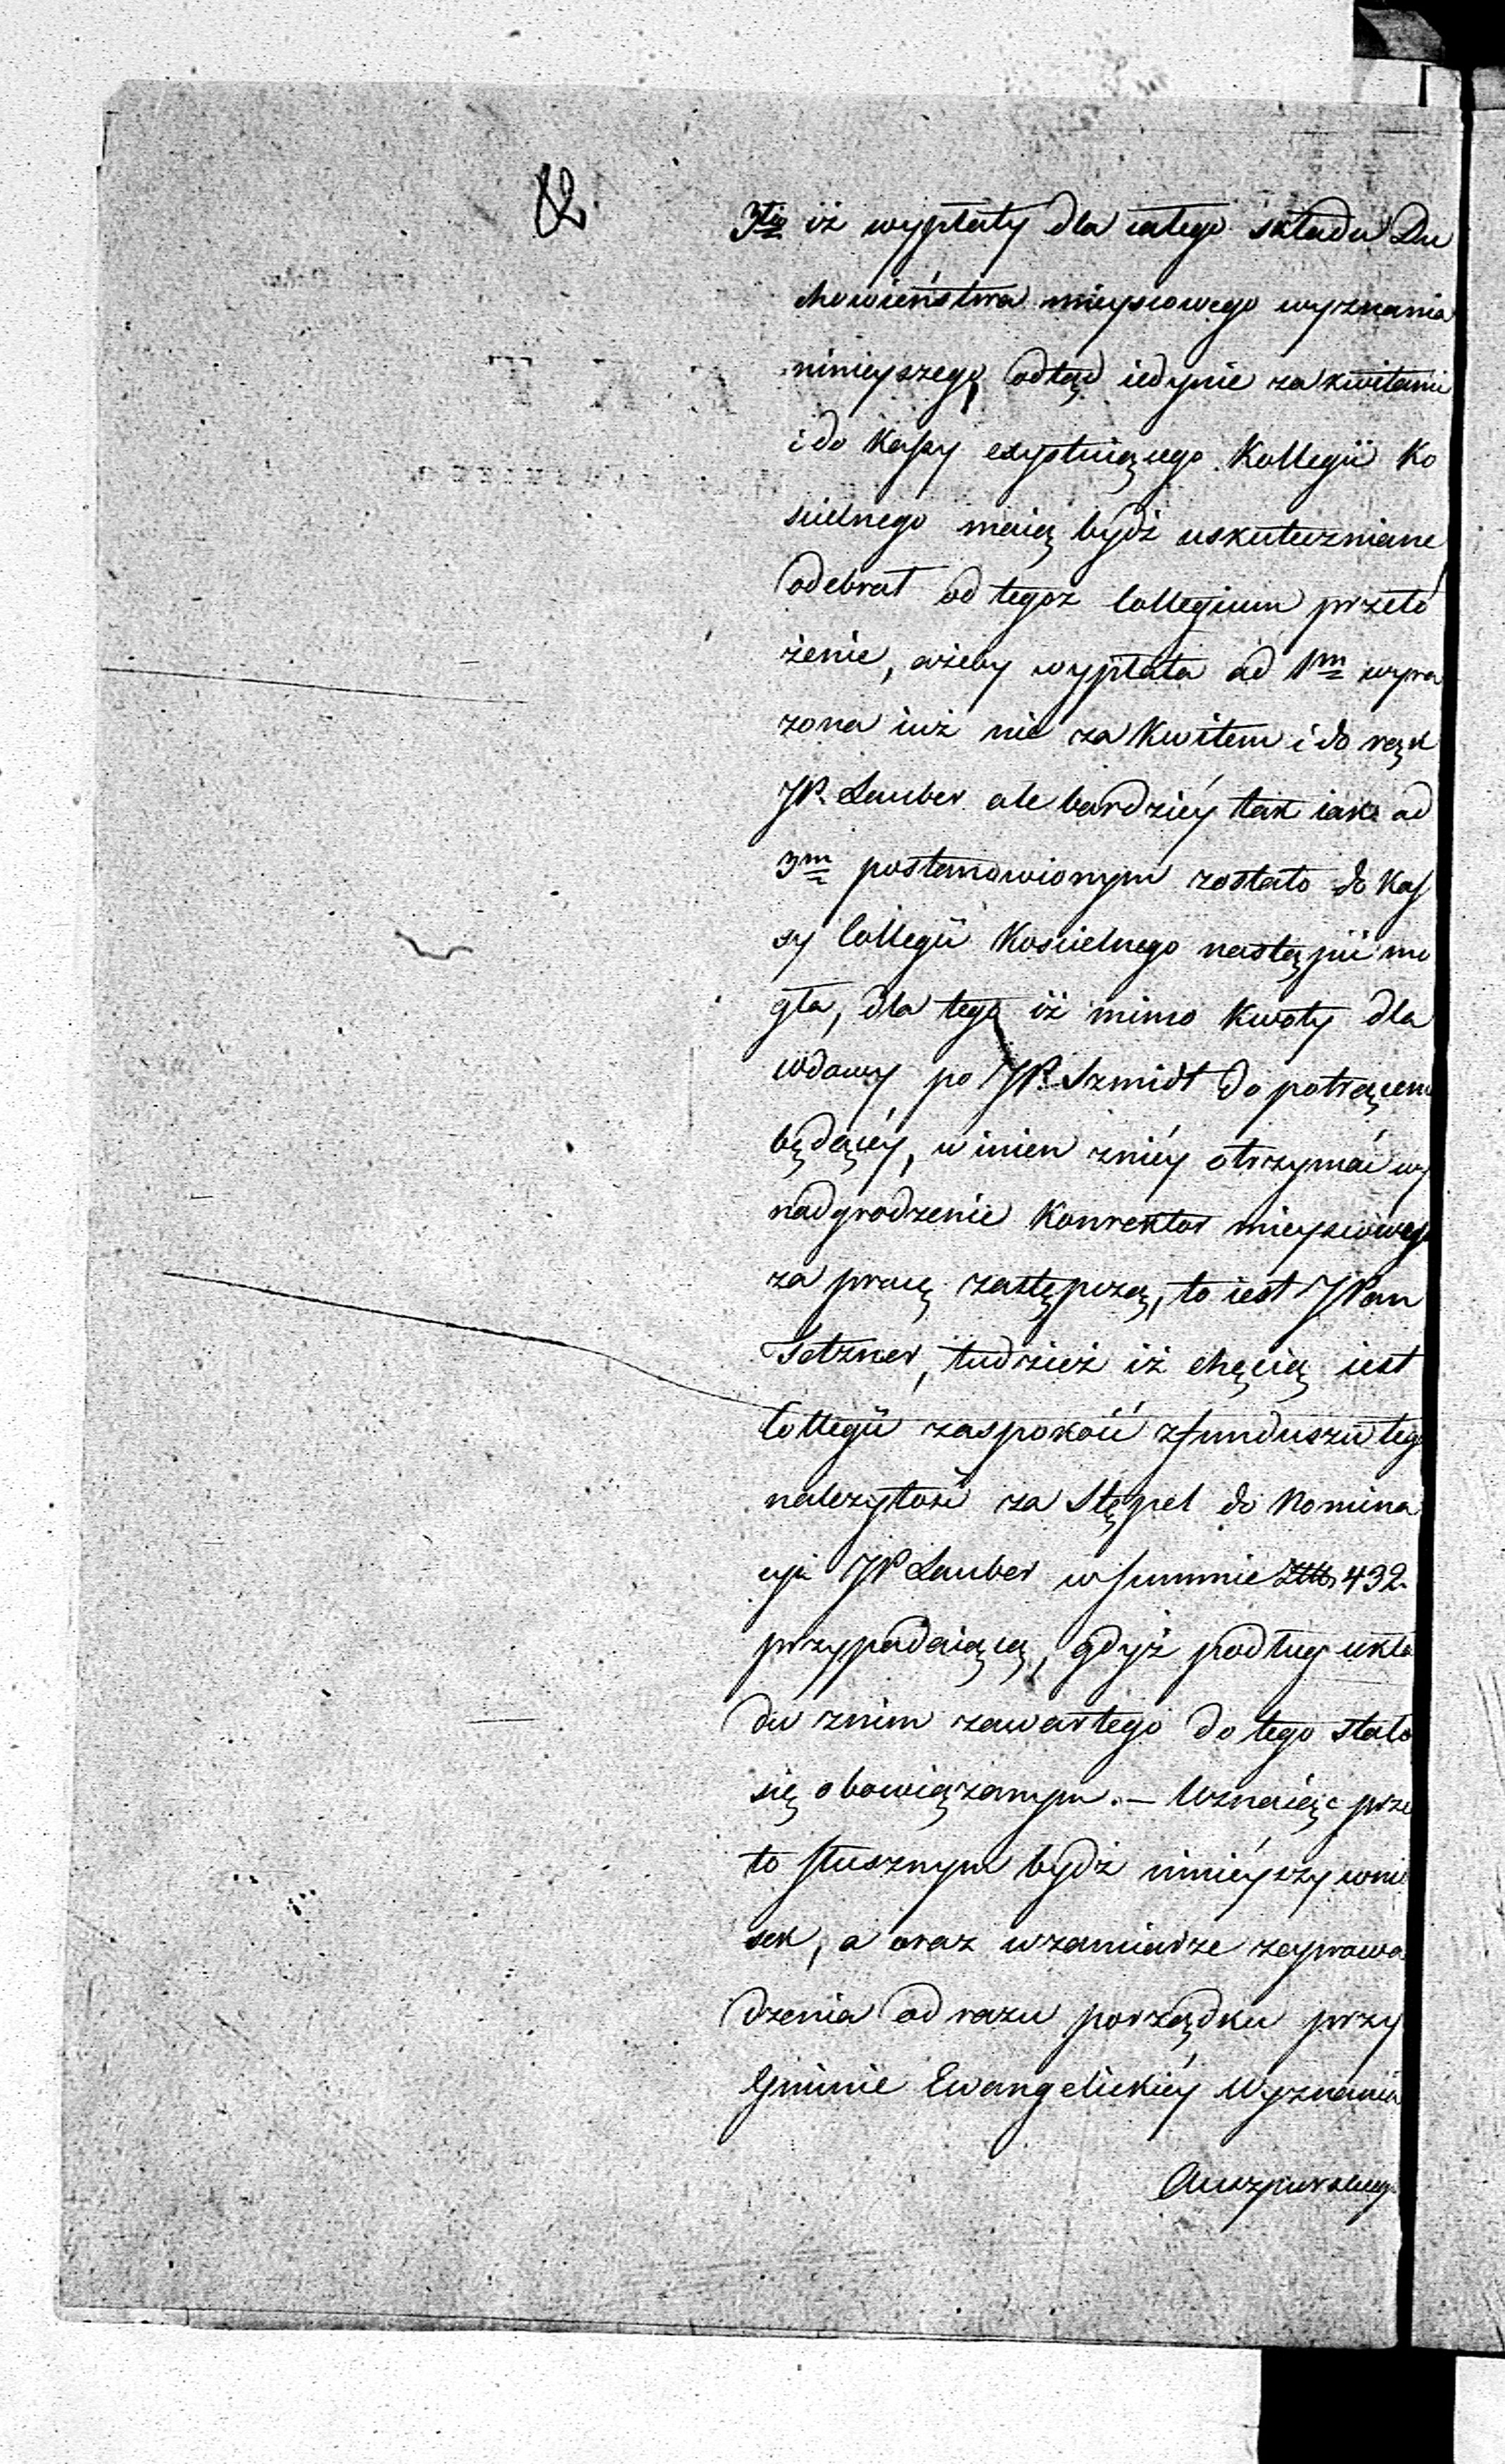 82
3tio iż wypłaty dla całego składu Du
chowieństwa mieyscowego wyznania
ninieyszego, odtąd iedynie za kwitami
i do Kassy exystuiącego Kollegii Ko
ścielnego maią bydź uskuteczniane
odebrał od tegoż Collegium przeło
żenie, ażeby wypłata ad 1m wyra
żona iuż nie za Kwitem i do rąk
JP. Lauber ale bardziéy tak iak ad
3m postanowionym zostało do Kas
sy Collegii Kościelnego nastąpić mo
gła, dla tego iż mimo Kwoty dla
wdowy po JP. Szmidt do potrącenia
będącéy, winien zniéy otrzymać wy
nadgrodzenie Konrektor mieyscowy
za pracę zastępczą, to iest JPan
Setzner, tudzież iż chęcią iest
Collegii zaspokoić z funduszu tego
należytość za Stępel do Nomina
cyi JP Lauber w summie 432.
przypadaiącą, gdyż podług ukła
du znim zawartego do tego stało
się obowiązanym. — Uznaiąc prze
to słusznym bydź ninieyszy wnio
sek, a oraz w zamiarze zaprowa
dzenia od razu porządku przy
Gminie Ewangelickiéy Wyznania
Auszpurskiego